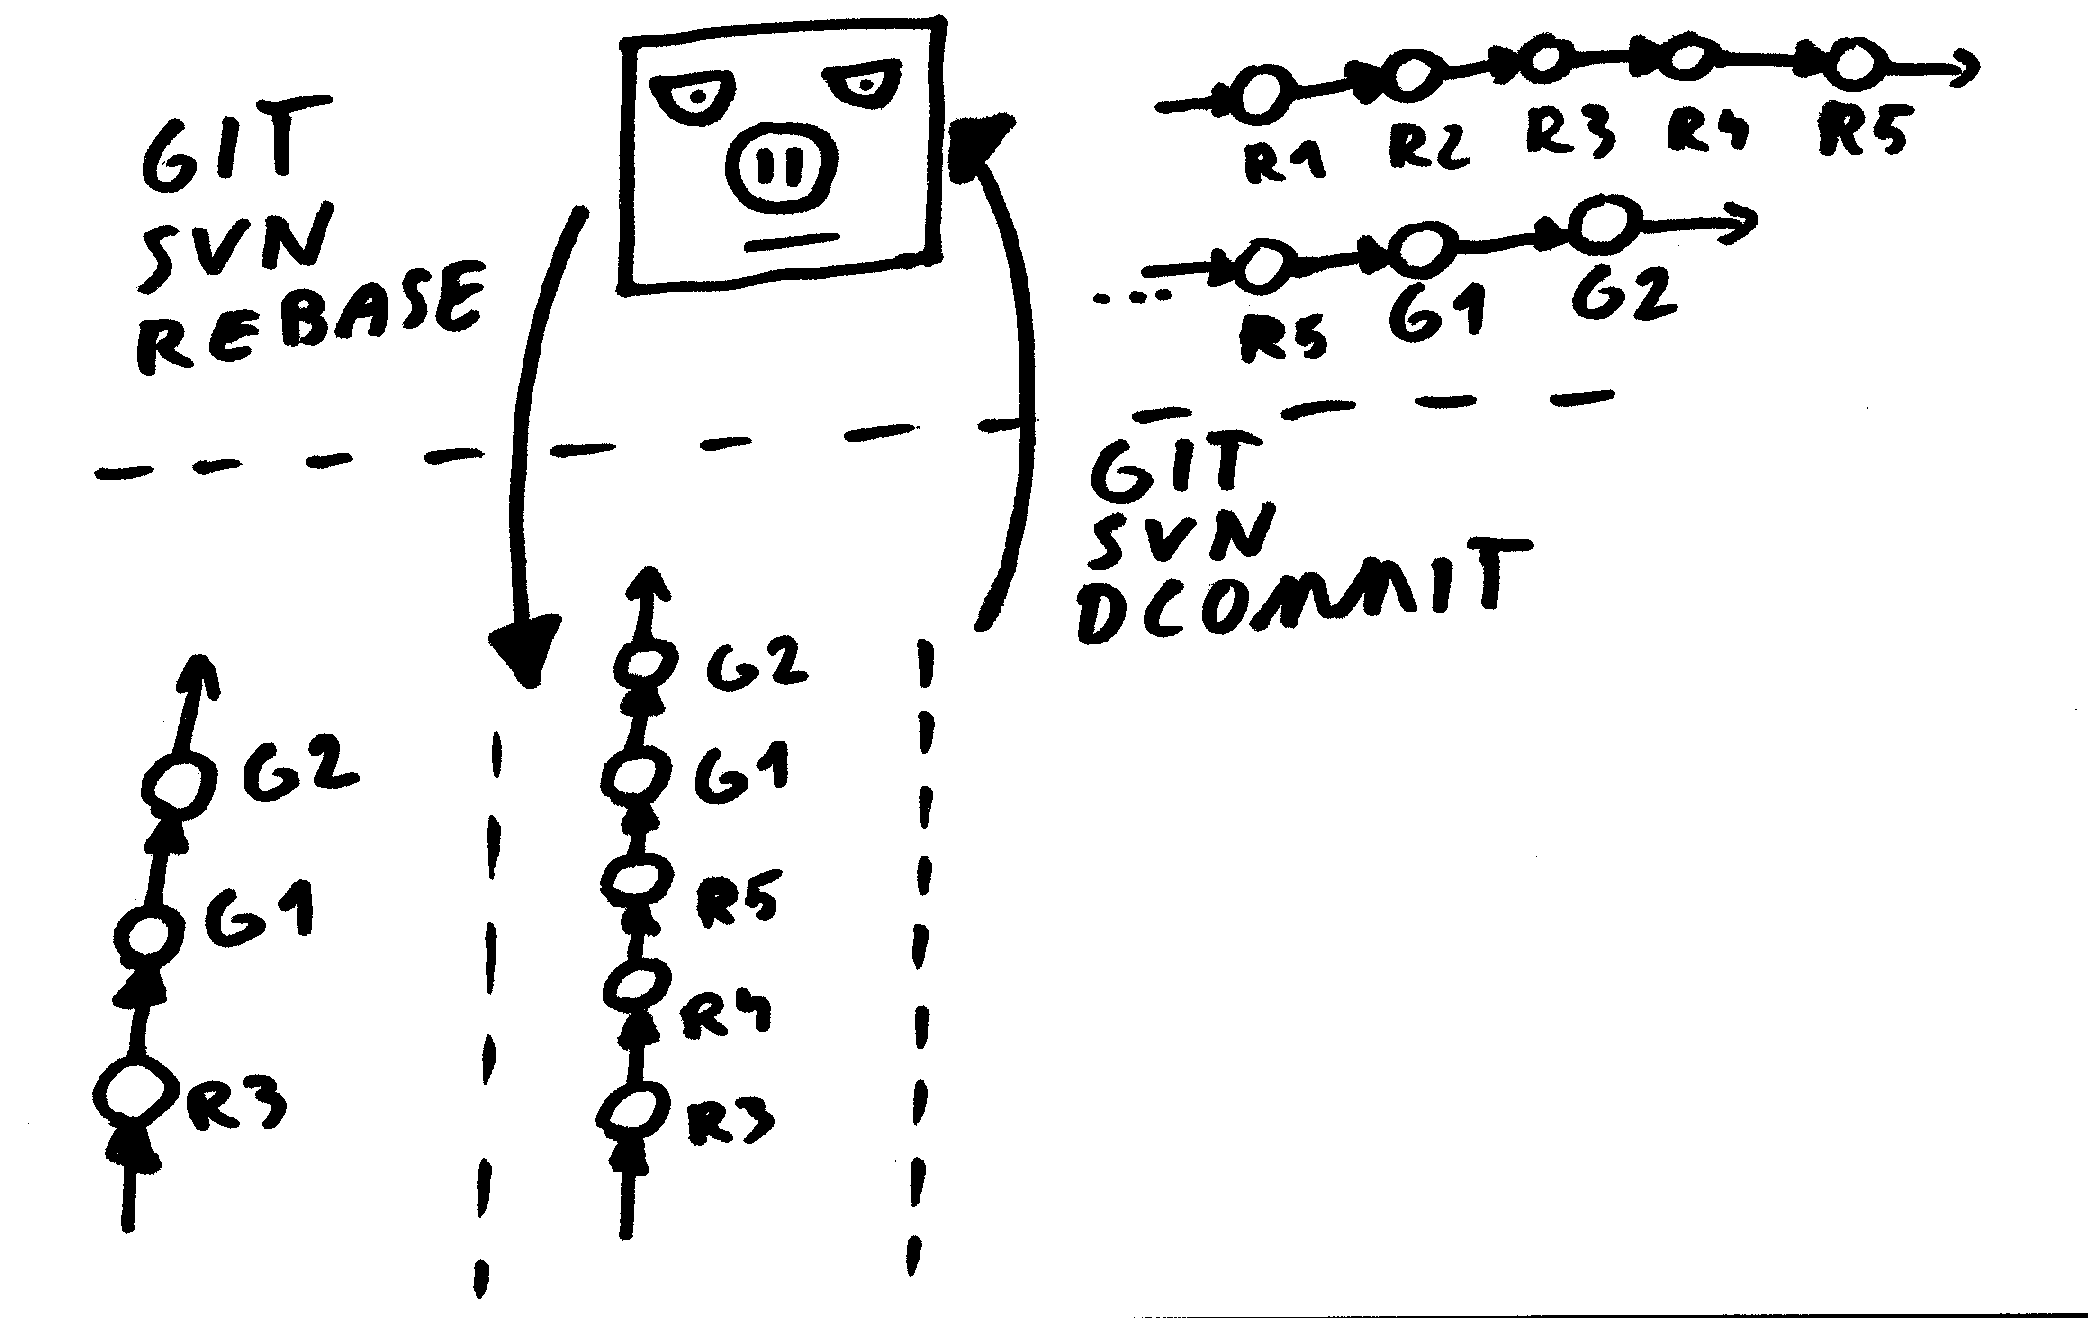 GIT
SVN
REBASE
R1 R2 R3 R4 R5
R5 G1 G2
GIT
SVN
DCOMMIT
G2
G1
R3
G2
G1
R5
R4
R3